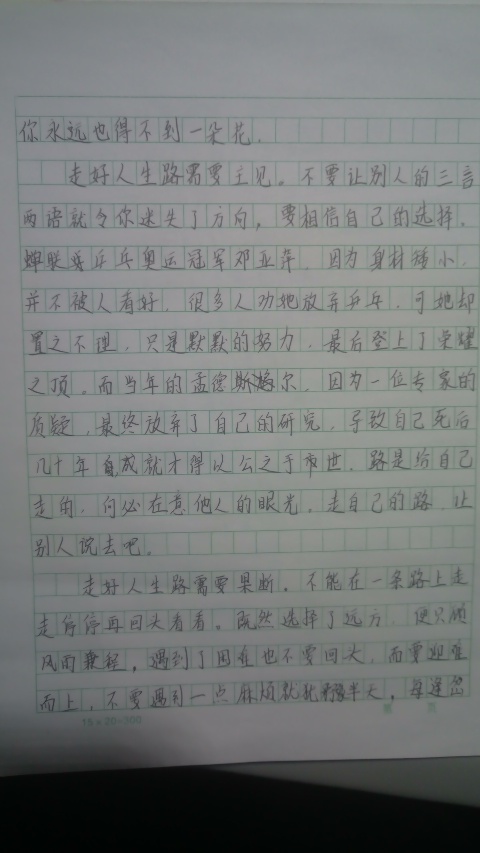 你永远也得不到一朵花.
走好人生路需要主见。不要让别人的三言
两语就令你迷失了方向,要相信自己的选择.
蝉联乒乒乓奥运冠军邓亚萍.因为身材矮小.
并不被人看好.很多人劝她放弃乒乓.可她却
置之不理.只是默默的努力.最后登上了荣耀
之顶.而当年的孟德尔.因为一位专家的
质疑.最终放弃了自己的研究.导致自己死后
几十年成就才得以公之于世.路是给自己
走的.何必在意他人的眼光.走自己的路.让
别人说去吧.
走好人生路需要果断.不能在一条路上走
走停停再回头看看。既然选择了远方.便只顾
风雨兼程,遇到了困难也不要回头.而要迎难
而上,不要遇到一点麻烦就犹豫半天,每逢岔
15×20=300
第 页